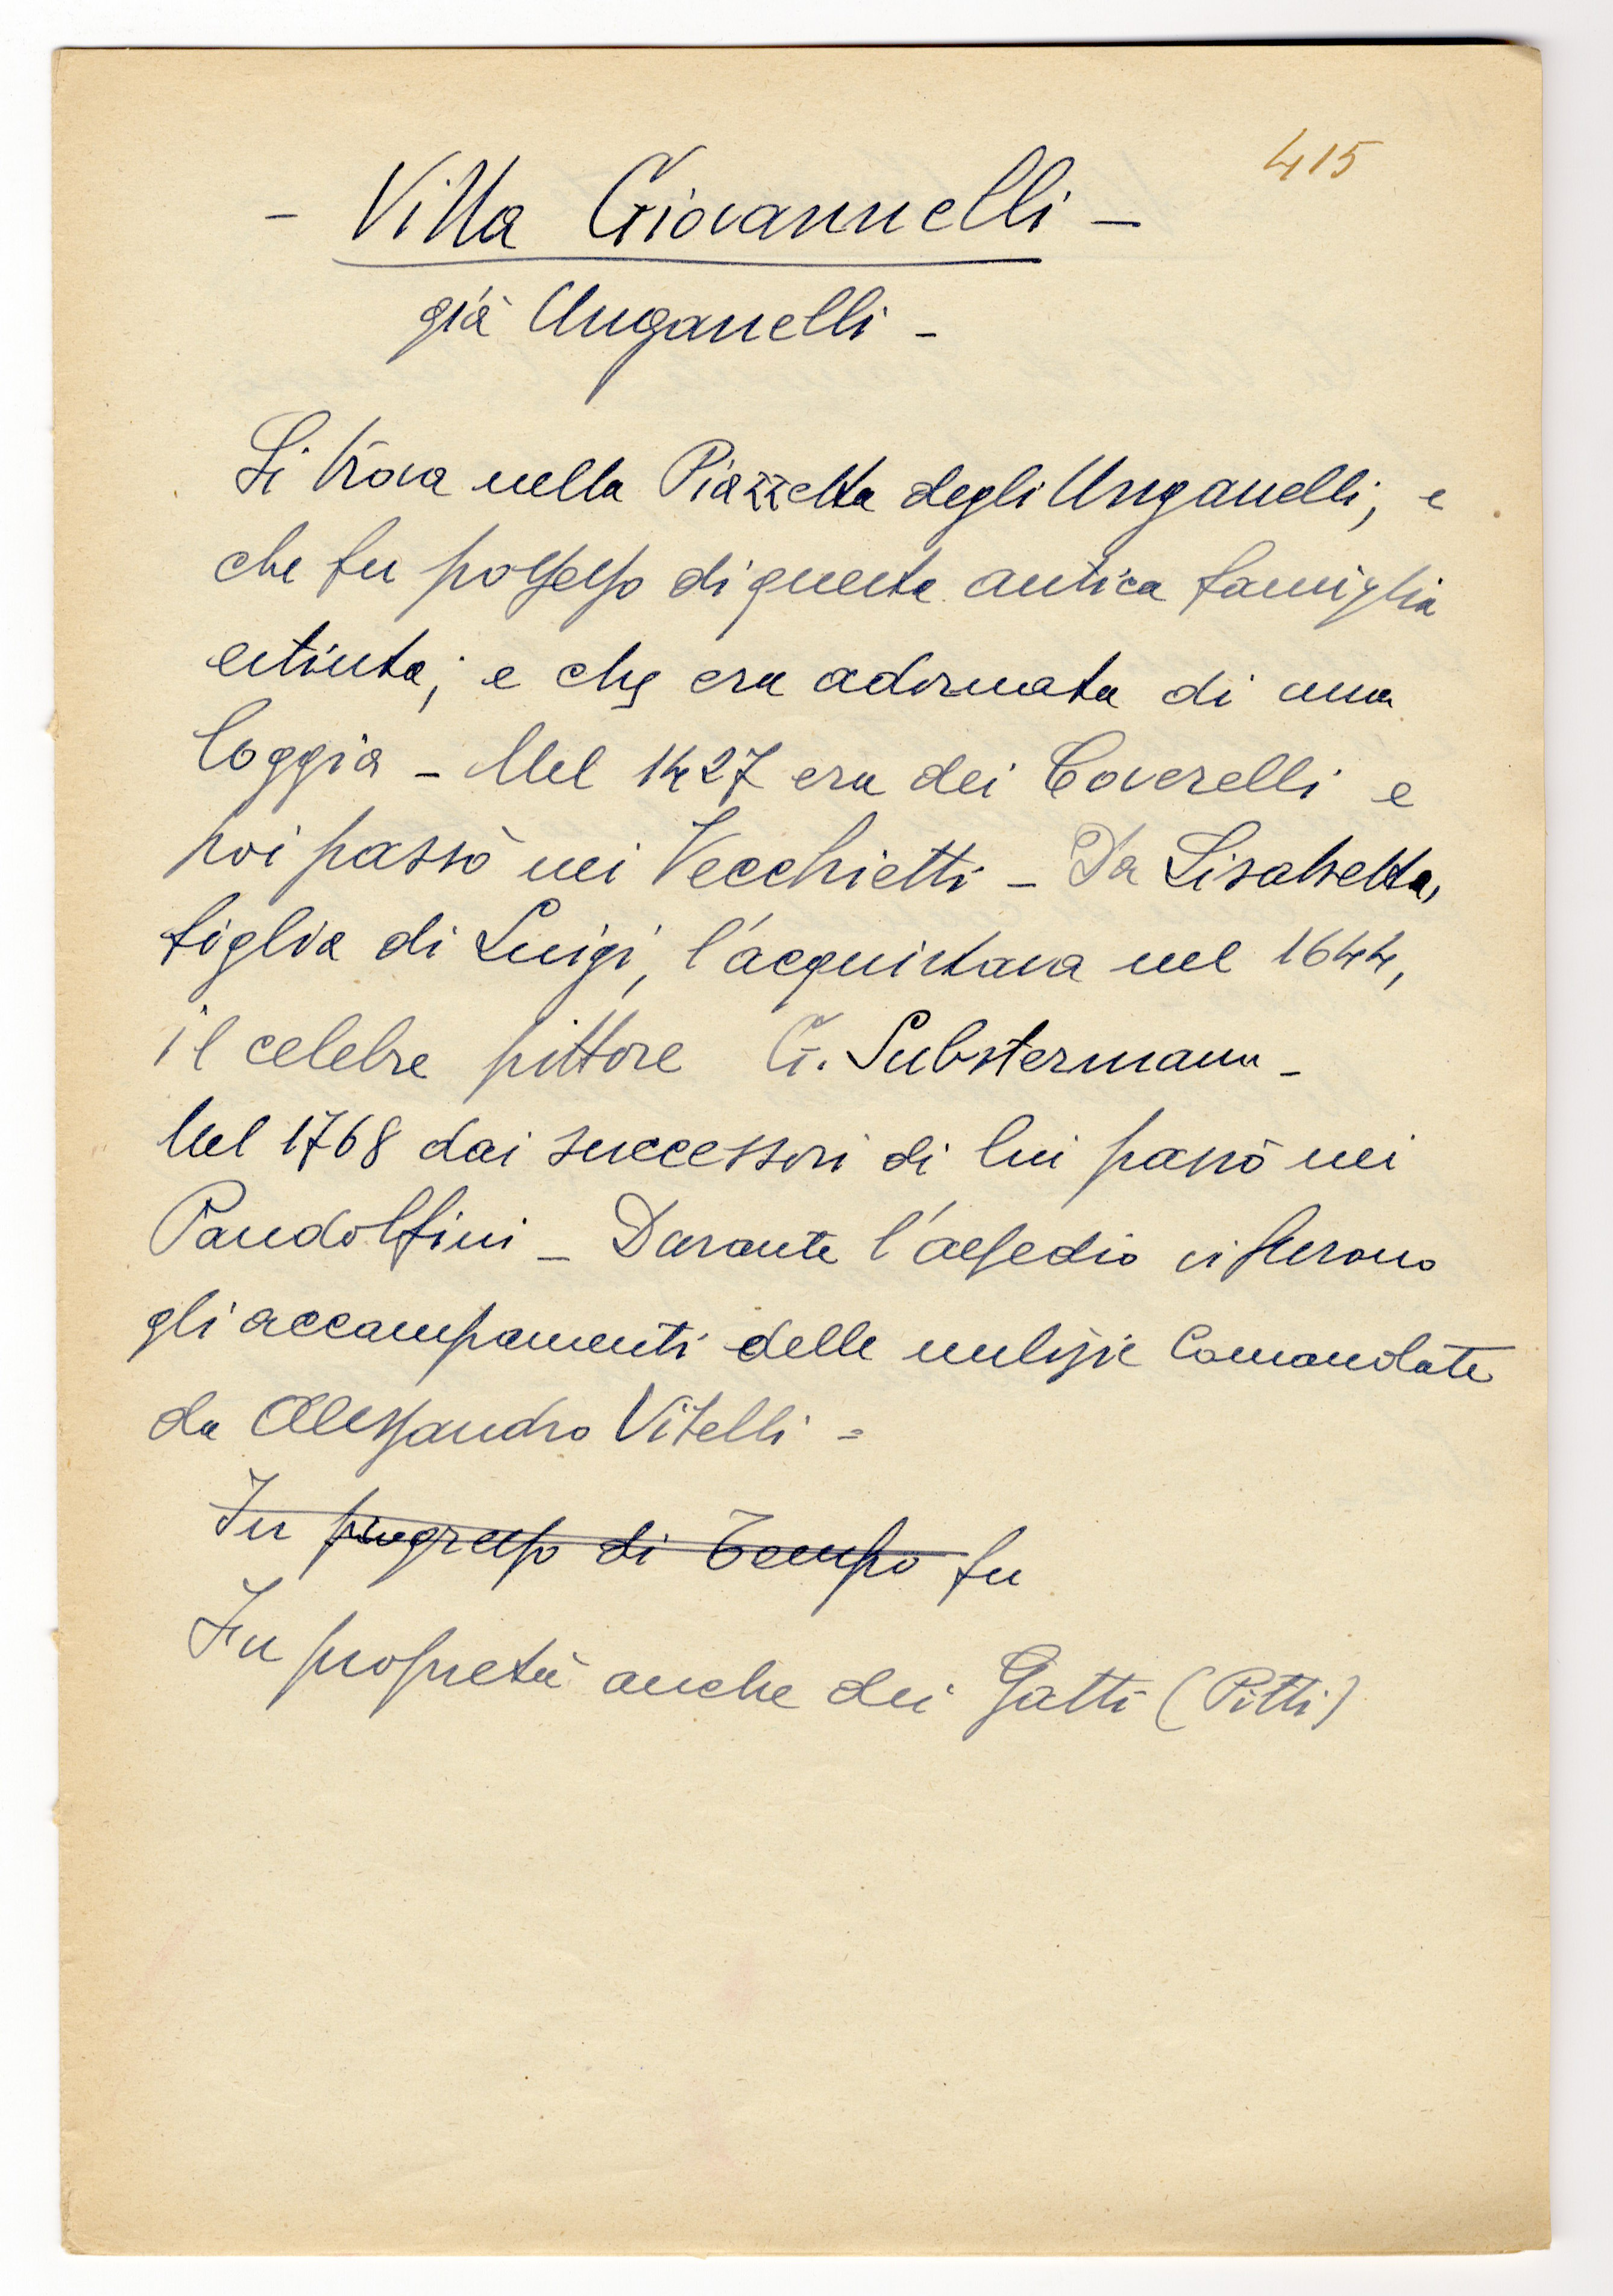 415
- Villa Giovannelli -
già Unganelli -
Si trova nella Piazzetta degli Unganelli, e
che fu possesso di questa antica famiglia
estinta; e che era adornata di una
loggia - Nel 1427 era dei Coverelli e
poi passò nei Vecchietti - Da Lisabetta,
figlia di Luigi, l'acquistava nel 1644,
il celebre pittore G. Substermann -
Nel 1768 dai successori di lui passò nei
Pandolfini - Durante l'assedio vi furono
gli accampamenti delle milizie Comandate
da Alessandro Vitelli =
In progresso di Tempo fu
Fu proprietà anche dei Gatti (Pitti)